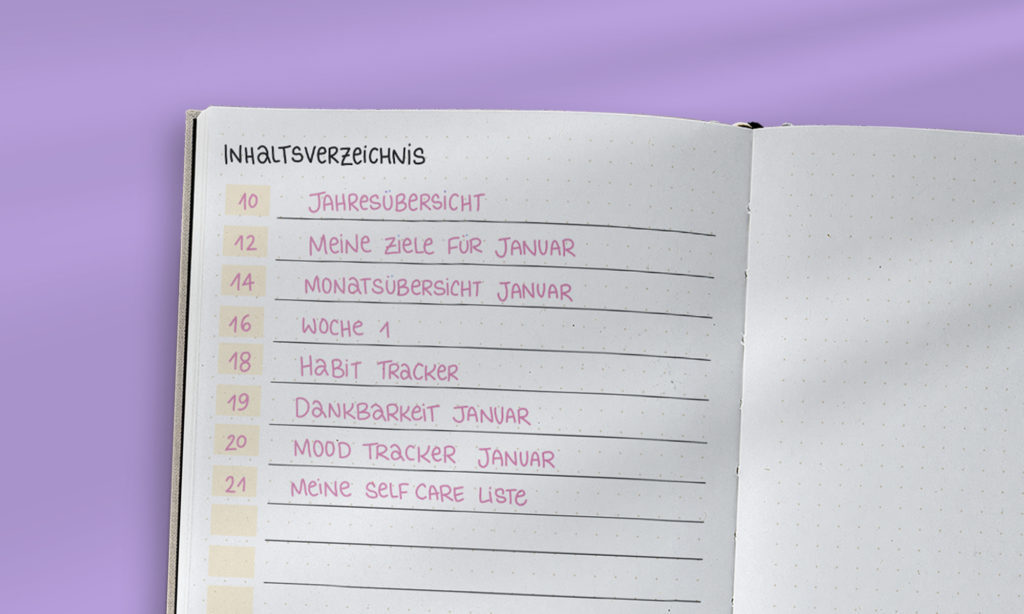 INHALTSVERZEICHNIS
10 JAHRESÜBERSICHT
12 MEINE ZIELE FÜR JANUAR
14 MONATSÜBERSICHT JANUAR
16 WOCHE 1
18 HABIT TRACKER
19 DANKBARKEIT JANUAR
20 MOOD TRACKER JANUAR
21 MEINE SELF CARE LISTE